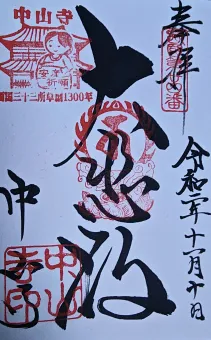 奉拝
令和二年十一月十日
大悲殿
中山寺
中山寺
安産
祈願
西国三十三所草創1300年
中山寺印